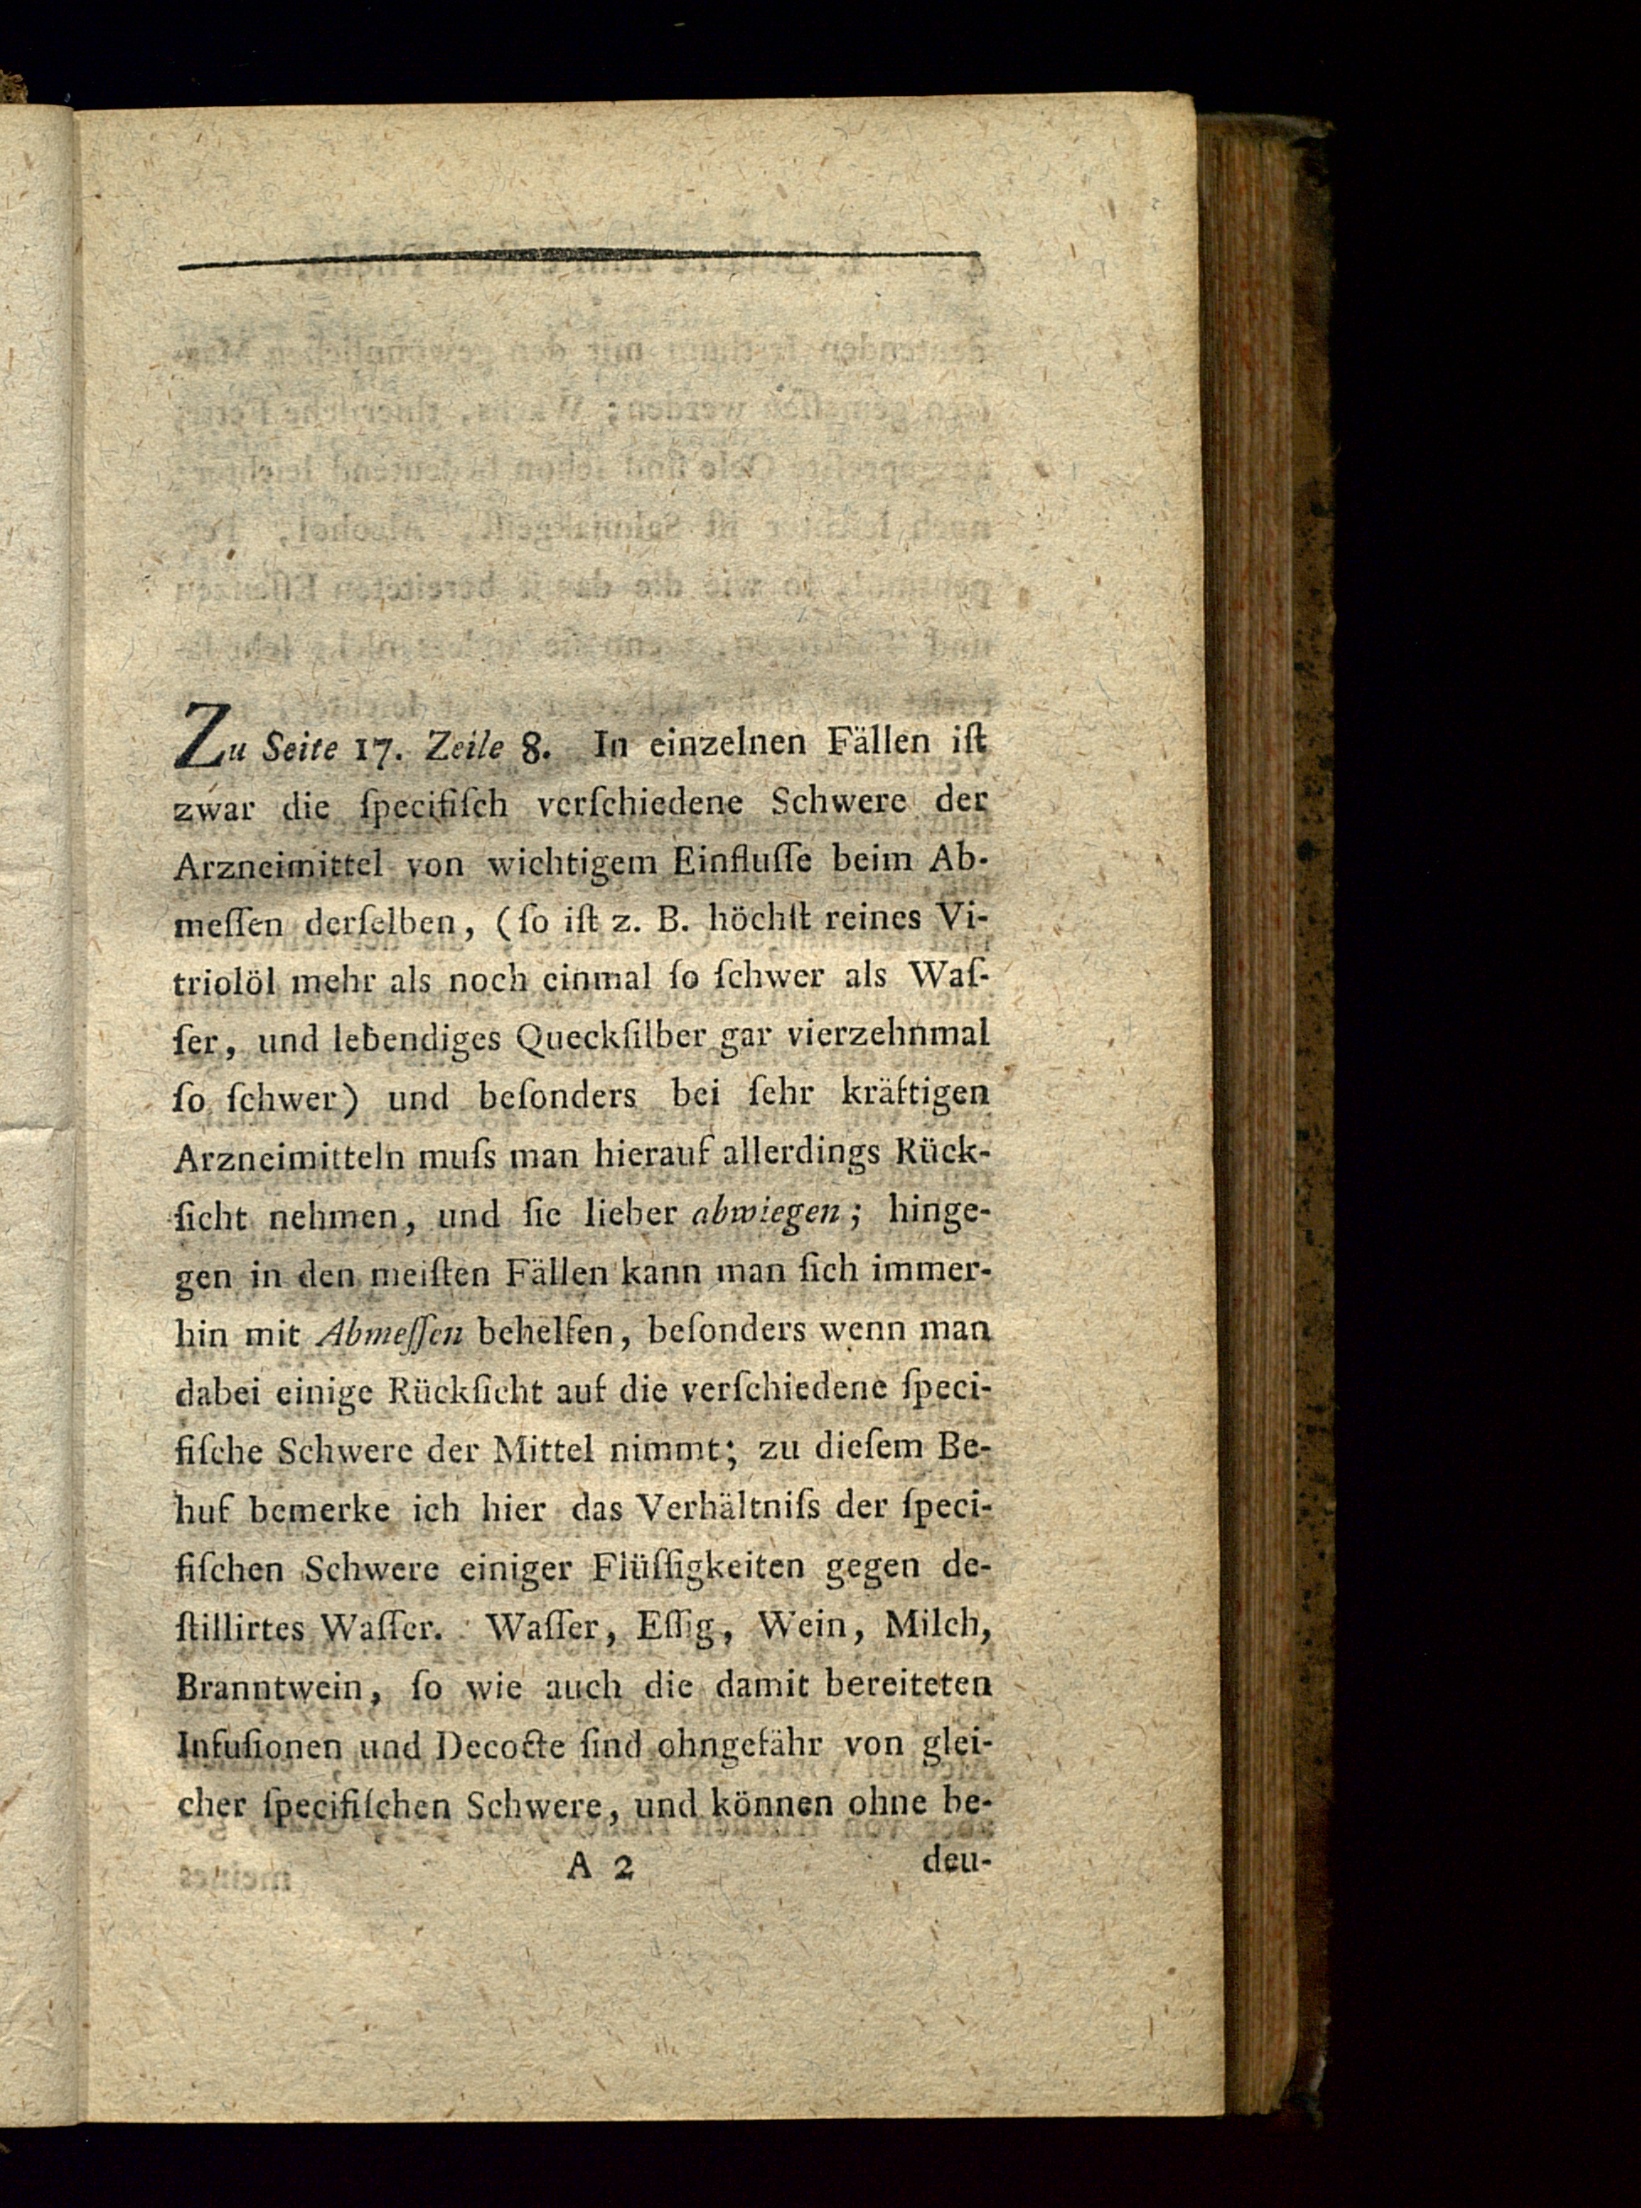 Zu Seite 17. Zeile 8. In einzelnen Fällen iſt
zwar die ſpecifiſch verſchiedene Schwere der
Arzneimittel von wichtigem Einfluſſe beim Ab-
meſſen derſelben, (ſo iſt z. B. höchſt reines Vi-
triolöl mehr als noch einmal ſo ſchwer als Waſ-
ſer, und lebendiges Queckſilber gar vierzehnmal
ſo ſchwer) und beſonders bei ſehr kräftigen
Arzneimitteln muſs man hierauf allerdings Rück-
ſicht nehmen, und ſie lieber abwiegen; hinge-
gen in den meiſten Fällen kann man ſich immer-
hin mit Abmeſſen behelfen, beſonders wenn man
dabei einige Rückſicht auf die verſchiedene ſpeci-
fiſche Schwere der Mittel nimmt; zu dieſem Be-
huf bemerke ich hier das Verhältniſs der ſpeci-
fiſchen Schwere einiger Flüſſigkeiten gegen de-
ſtillirtes Waſſer. Waſſer, Eſſig, Wein, Milch,
Branntwein, ſo wie auch die damit bereiteten
Infuſionen und Decocte ſind ohngefähr von glei-
cher ſpecifiſchen Schwere, und können ohne be-
A 2 deu-